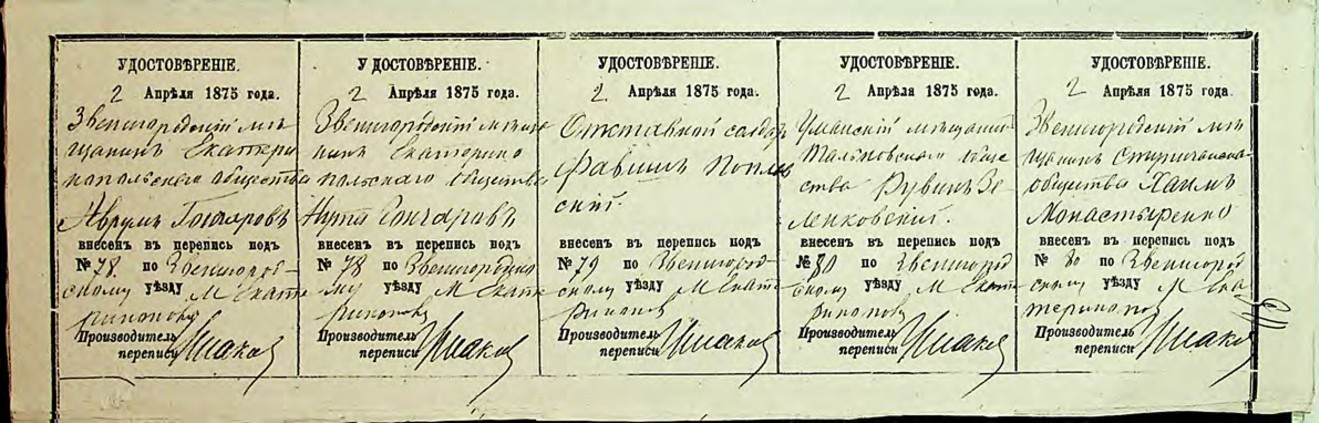 УДОСТОВѢРЕНІЕ.
2 Апрѣля 1875 года.
Звенигородскій мѣ
щанинъ Екатери
напольскаго общества
Аврумъ Гончаровъ
внесенъ въ перепись подъ
№ 78. по Звенигород-
скому уѣзду М Екате
ринополь
Производитель
переписи
УДОСТОВѢРЕНІЕ.
2 Апрѣля 1875 года.
Звенигородскій мѣща
нинъ Екатерино
польскаго общества
Нута Гончаровъ
внесенъ въ перепись подъ
№ 78 по Звенигородско
му уѣзду М Екате
ринополь
Производитель
переписи
УДОСТОВѢРЕНІЕ.
2 Апрѣля 1875 года.
Отставной солдатъ
Файвишъ
скій.
внесенъ въ перепись подъ
№ 79 по Звенигород-
скому уѣзду М Екате
ринополь
Производитель
переписи
УДОСТОВѢРЕНІЕ.
2 Апрѣля 1875 года.
Уманскій мѣщанинъ
Тальновскаго обще
ства Рувинъ Зе
ленковскій.
внесенъ въ перепись подъ
№ 80 по Звенигород
скому уѣзду М Екате
ринополь
Производитель
переписи
УДОСТОВѢРЕНІЕ.
2 Апрѣля 1875 года.
Звенигородскій мѣ
щанинъ
общества Хаимъ
Монастыренко
внесенъ въ перепись подъ
№ 80 по Звенигород
скому уѣзду М Ека
теринопол
Производитель
переписи